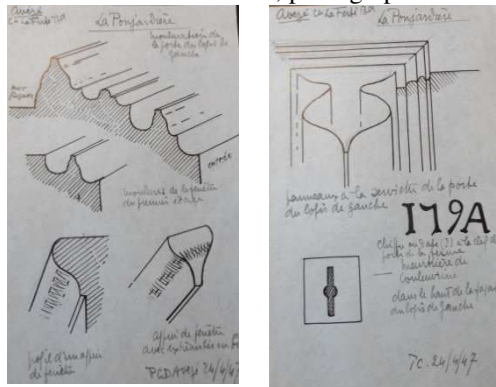 Avezé
La Ponjardière
mouluration de
la porte du logis de
gauche
entrée
moulures de la fenêtre
du premier étage
profil d'un appui
de fenêtre
appui de fenêtre
avec extrémités en
24/4/47
Avezé
La Ponjardière
panneaux à la serviette de la porte
du logis de gauche
I79A
Chiffre ou date (?) à la clef de
porte de la
meurtrière de
couleuvrine
dans le haut de la façade
du logis de gauche
P.C. 24/4/47